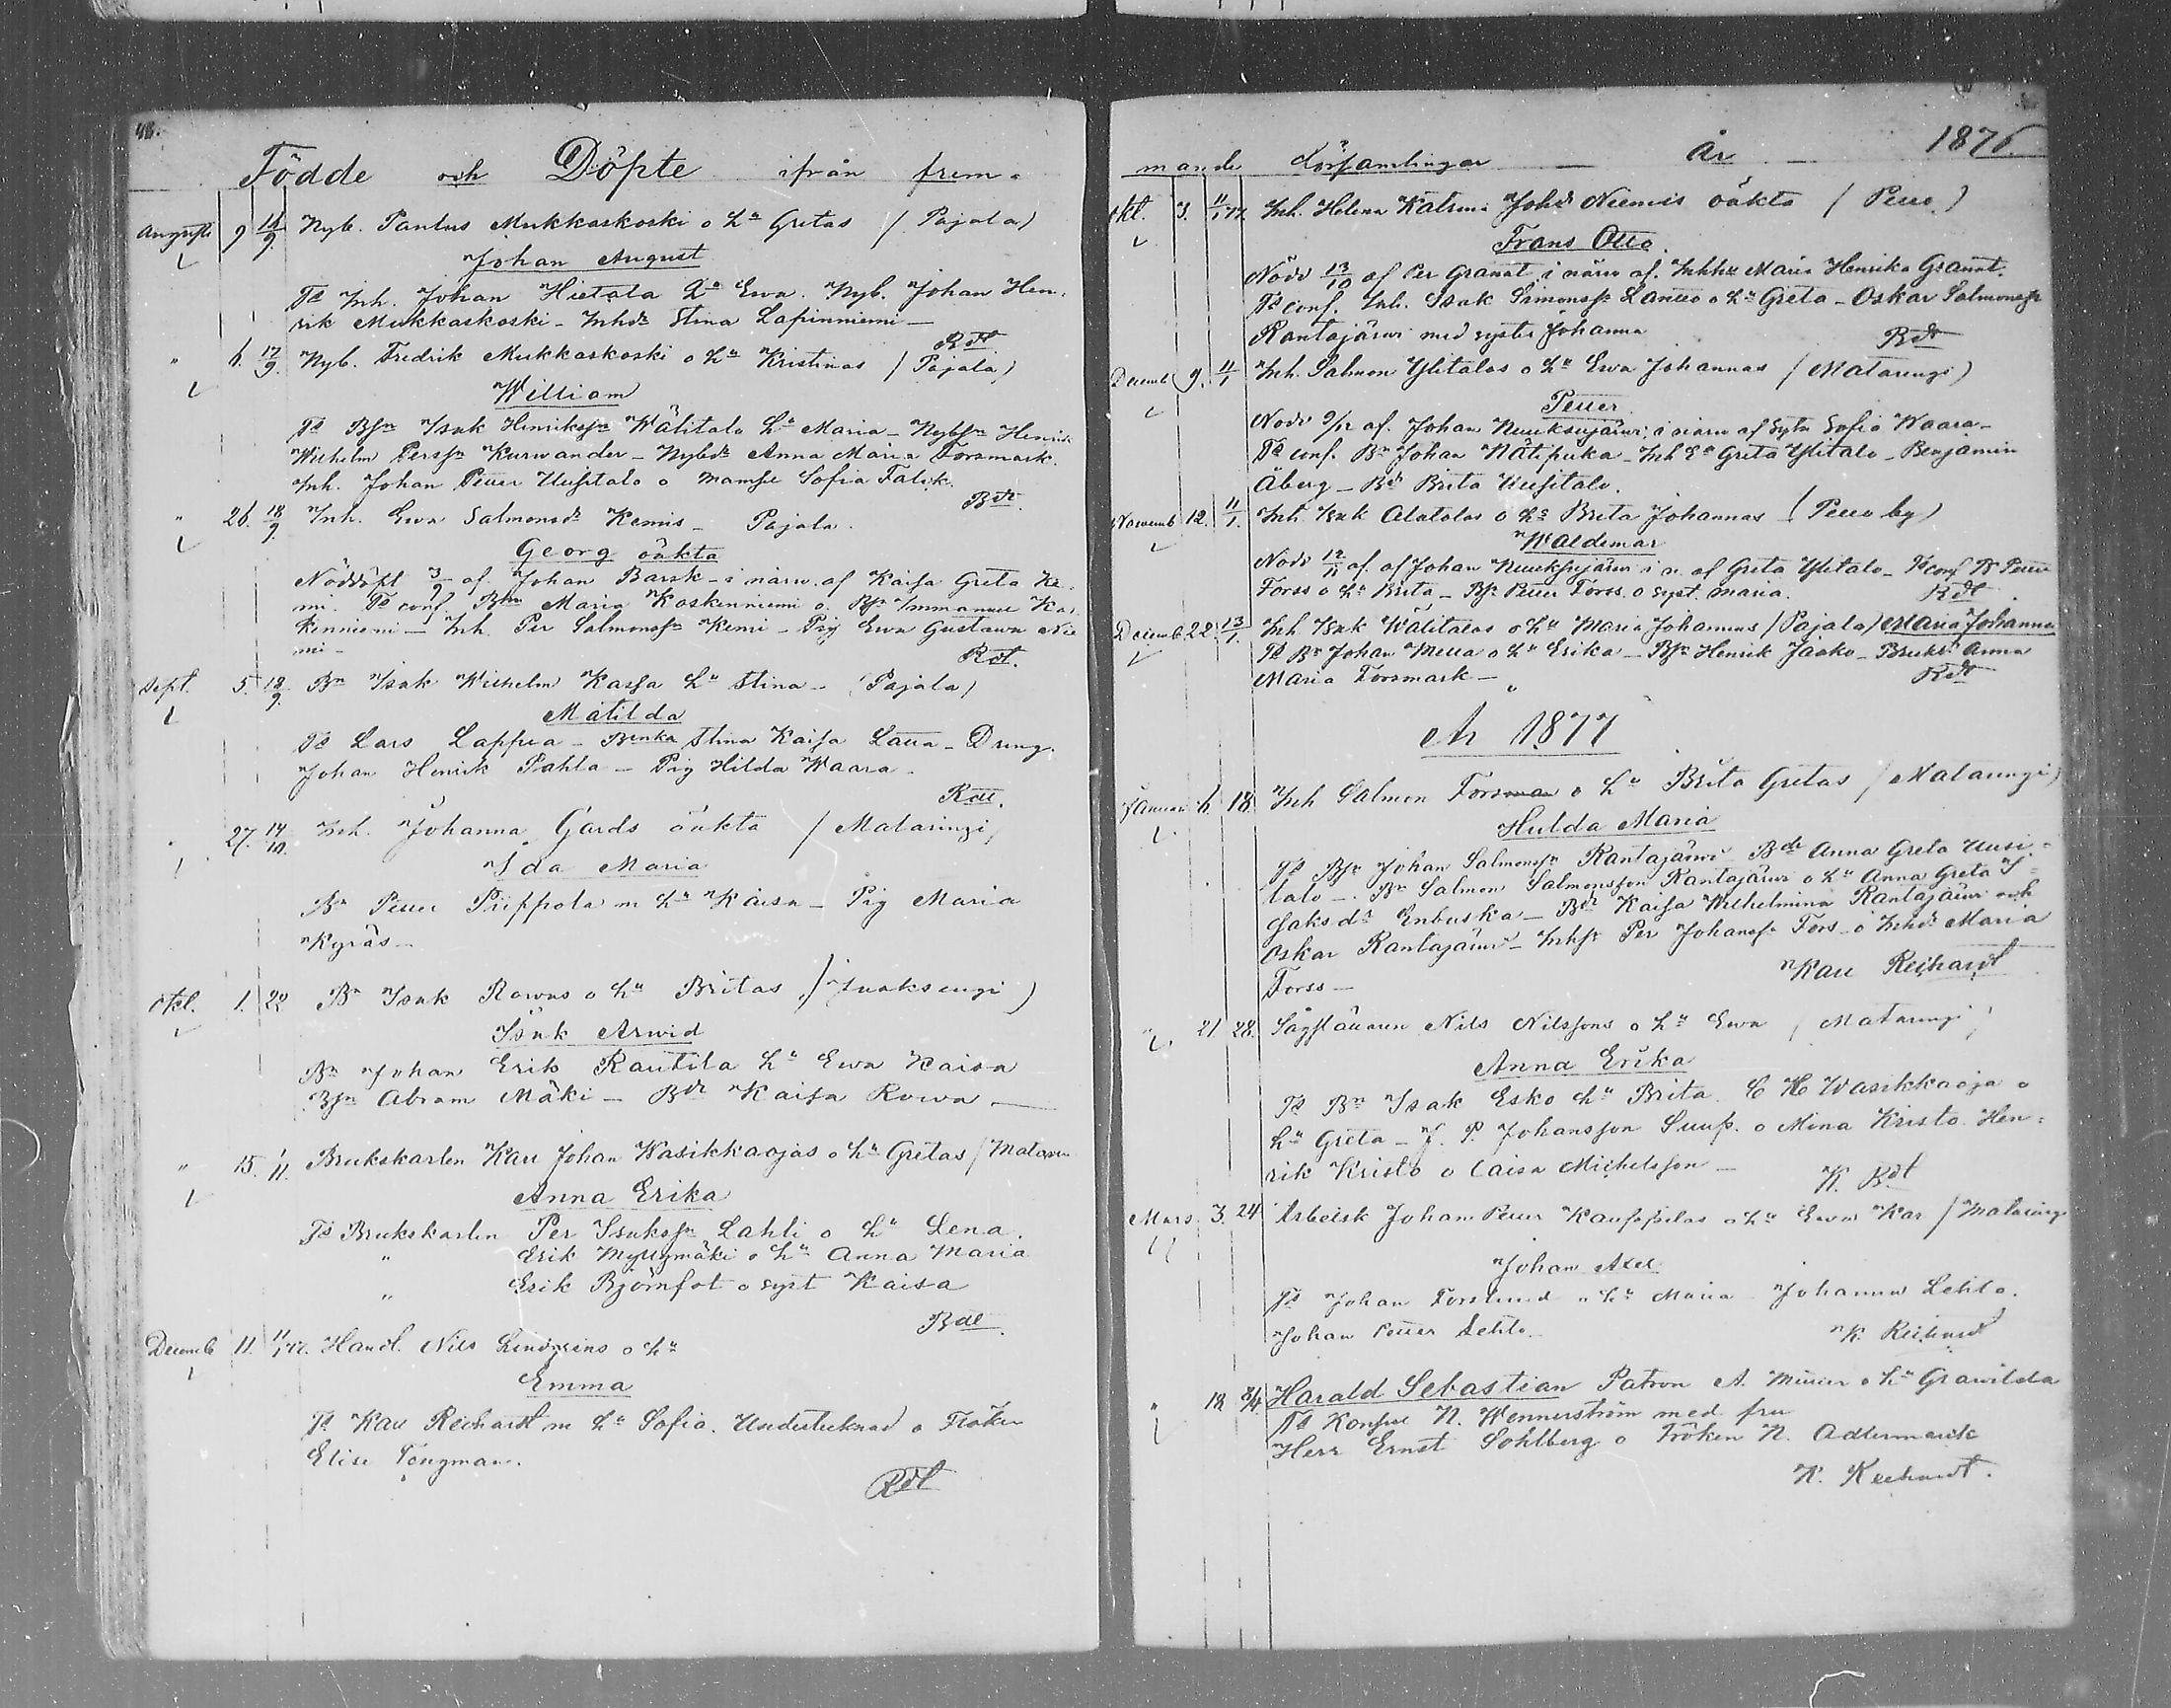 48.
Födde och Döpte ifrån frem-
Augusti 9 14/9 Nyb. Paulus Mukkaskoski o h:u Gretas / Pajala)
Johan August
Td Inh. Johan Hietala h:u Ewa. Nyb. Johan Hen-
rik Mukkaskoski - Inhdr Stina Lapinniemi -
Rdt
" 6. 17/9. Nyb. Fredrik Mukkaskoski o h:u Kristinas / Pajala)
William
Td Bsn Isak Henriksn Wälitalo h:u Maria - Nybsn Henrik
Wilhelm Perssn Kurwander - Nybdr Anna Maria Forsmark.
Inh. Johan Petter Uusitalo o Mamse Sofia Falck.
Rdt.
" 26. 18/9 Inh. Ewa Salmonsdr Kemis - Pajala.
Georg oäkta
Nöddöpt 3/9 af Johan Barsk - i närw. af Kaisa Greta Ke-
mi. Td conf. Maria Koskenniemi o. Bsn Immanuel Kos-
kenniemi - Inh. Per Salmonssn Kemi - Pig Ewa Gustawa Nie
mi -
Rdt.
Sept. 5. 18/9. Bn Isak Wilhelm Kassa h:u Stina - (Pajala)
Matilda
Td Lars Lappea - Benka Stina Kaisa Latta - Dreng.
Johan Henrik Pahla - Pig Hilda Waara -
Rdt.
" 27. 14/10. Inh. Johanna Gards oäkta / Matarengi)
Ida Maria
Bn Petter Piippola m h:u Kaisa - Pig Maria
Kyräs -
Okt. 1. 22 Bn Isak Rowas o h:u Britas / Juoksengi)
Isak Arwid
Bn Johan Erik Rautila h:u Ewa Kaisa
Bsn Abram Mäki - Bdr Kaisa Rowa -
" 15. 1/11. Brukskarlen Karl Johan Wasikkaojas o h:u Gretas / Mataren
Anna Erika
Td Brukskarlen Per Isakssn Lahti o h:u Lena.
" Erik Myllymäki o h:u Anna Maria
" Erik Björnfot o syst Kaisa
Rdt.
Decemb 11. 11/1 77. Handl. Nils Lindgrens o h:u
Emma
Td Karl Reichardt m h:u Sofia. Undertecknad o Fröken
Elise Tengman.
Rdt
mande Församlingar - År - 1876.
Okt. 3. 11/1 77 Inh. Helena Katrina Johdr Niemis oäkta / Pello)
Frans Otto.
Nödd 13/10 af Per Granat i närw af. Inhhu Maria Henrika Granat.
Td conf. Inh. Isak Simonssn Lantto o h:u Greta - Oskar Salmonssn
Rantajärwi med syster Johanna
Rdt
Decemb 9. 11/1 Inh. Salmon Ylitalos o h:u Ewa Johannas / Matarengi)
Petter.
Nödd 9/12 af. Johan Neuksujärwi, i närw af Sofia Waara -
Td conf. Bn Johan Nätipuka - Inh Ea Greta Ylitalo - Benjamin
Åberg - Bdr Brita Uusitalo.
Novemb 12. 11/1. Inh. Isak Alatalos o h:u Brita Johannas (Pello by)
Waldemar
Nödd 12/11 af. af Johan Neuksujärwi i n. af Greta Ylitalo - Td conf Bn Petter
Forss o h:u Brita - Bsn Petter Forss. o syst. Maria.
Rdt
Decemb 22. 13/1. Inh Isak Wälitalos o h:u Maria Johannas / Pajala) Maria Johanna
Td Bn Johan Mella o h:u Erika - Bsn Henrik Jaako - Bruksdr Anna
Maria Forsmark -
Rdt
År 1877
Januari 6. 18. Inh Salmon Forsman o h:u Brita Gretas / Matarengi)
Hulda Maria
Td Bsn Johan Salmonssn Rantajärwi Bdr Anna Greta Uusi-
talo - Bn Salmon Salmonsson Rantajärwi o h:u Anna Greta I-
saksdr Enbuska - Bdr Kaisa Wilhelmina Rantajärwi och
Oskar Rantajärwi - Inhsn Per Johanssn Fors o Inhdr Maria
Forss -
Karl Reichardt
" 21 28. Sågställaren Nils Nilssons o h:u Ewa / Matarengi)
Anna Erika
Td Bn Isak Esko h:u Brita. C H Wasikkaoja o
h:u Greta - J. P. Johansson Suup. o Mina Kristo. Hen-
rik Kristo o Caisa Michelsson -
K. Rdt
Mars 3. 24 Arbetsk Johan Petter Kauppilas o h:u Ewa Kar / Matarengi
Johan Axel
Td Johan Forslund o h:u Maria Johanna Lehto.
Johan Petter Lehto.
K. Reichardt
" 12 8/4 Harald Sebastian Patron A. o h:u Grawilda
Td Konsul N. Wennerström med fru
Herr Ernst Sohlberg o Fröken N. Adlermarck
K. Reichardt.